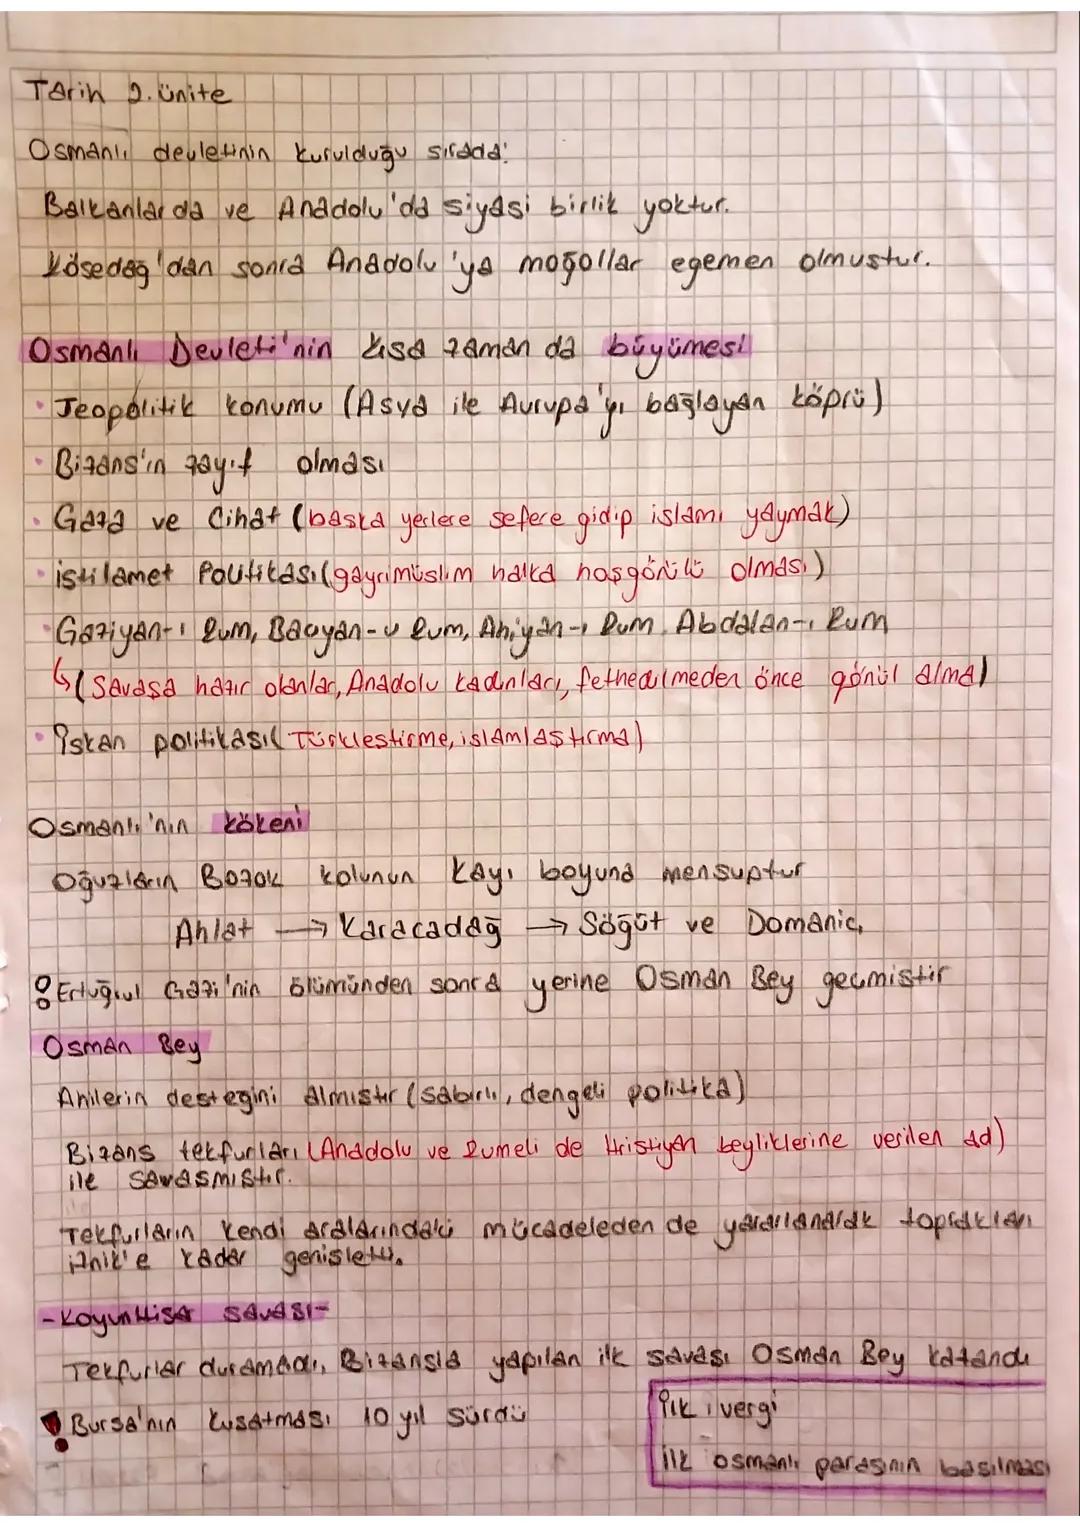 Tarih 2. ünite
Osmanlı devletinin kurulduğu sırada:
Balkanlar da ve Anadolu'da siyasi birlik yoktur.
Kösedağ'dan sonra Anadolu'ya moğollar egemen olmustur.
Osmanlı Devleti'nin kısa zaman da büyümesi
• Jeopolitik konumu (Asya ile Avrupa'yı bağlayan köprü)
• Bizans'ın zayıf olması
• Gaza ve Cihat (baska yerlere sefere gidip islamı yaymak)
• istilamet Politikası (gayrimüslim halka hoşgörülü olması)
• Gaziyan-ı Rum, Bacıyan-ı Rum, Ahiyan-ı Rum, Abdalan-ı Rum
↳ (Savaşa hazır olanlar, Anadolu kadınları, fethedilmeden önce gönül alma)
• İskan politikası (Türklestirme, islamlaştırma)
Osmanlı'nın kökeni
Oğuzların Bozok kolunun Kayı boyuna mensuptur
Ahlat → Karacadağ → Söğüt ve Domaniç
Ertuğrul Gazi'nin ölümünden sonra yerine Osman Bey geçmistir
Osman Bey
Ahilerin destegini almıstır (sabırlı, dengeli politika)
Bizans tekfurları (Anadolu ve Rumeli de Hristiyan beyliklerine verilen ad)
ile savasmıstır.
Tekfurların kendi aralarındaki mücadeleden de yararlanarak toprakları
iznik'e kadar genisletti.
-KoyunHisar savası-
Tekfurlar duramadı, Bizansla yapılan ilk savası Osman Bey kazandı
! Bursa'nın kusatması 10 yıl sürdü
İlk vergi
ilk osmanlı parasının basılması